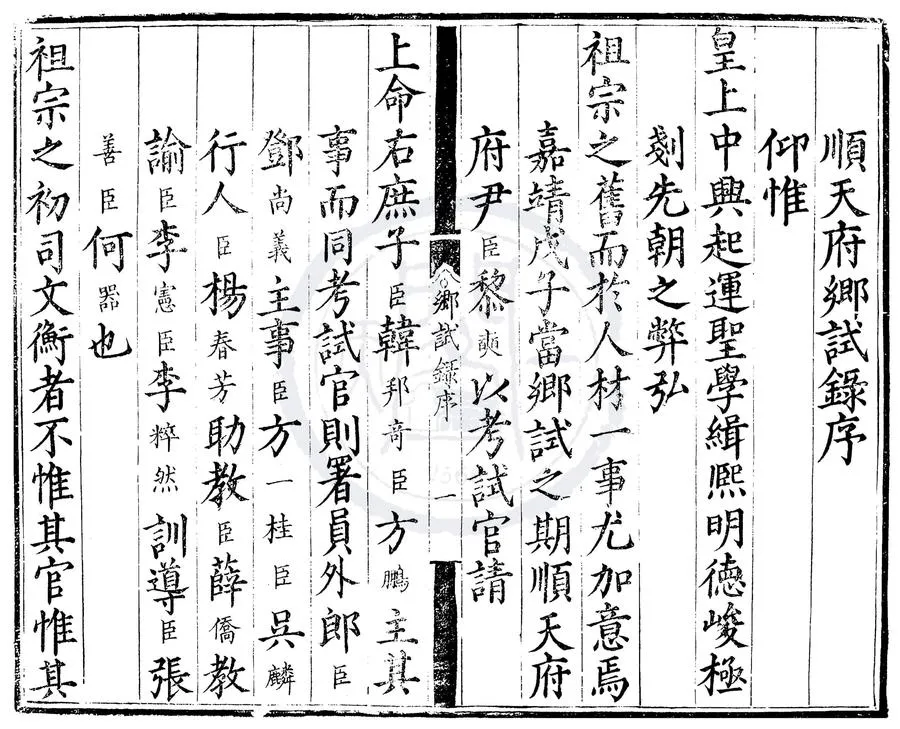 順天府鄉試錄序
仰惟
皇上中興起運聖學緝熈明德峻極
剗先朝之弊弘
祖宗之舊而於人材一事尤加意焉
嘉靖戊子當鄉試之期順天府
府尹臣黎奭以考試官請
鄉試錄序 一
上命右庶子臣韓邦奇臣方鵬主其
事而同考試官則署員外郎臣
鄧尚義主事臣方一桂臣吳麟
行人臣楊春芳助教臣薛僑教
諭臣李憲臣李粹然訓導臣張
善臣何器也
祖宗之初司文衡者不惟其官惟其